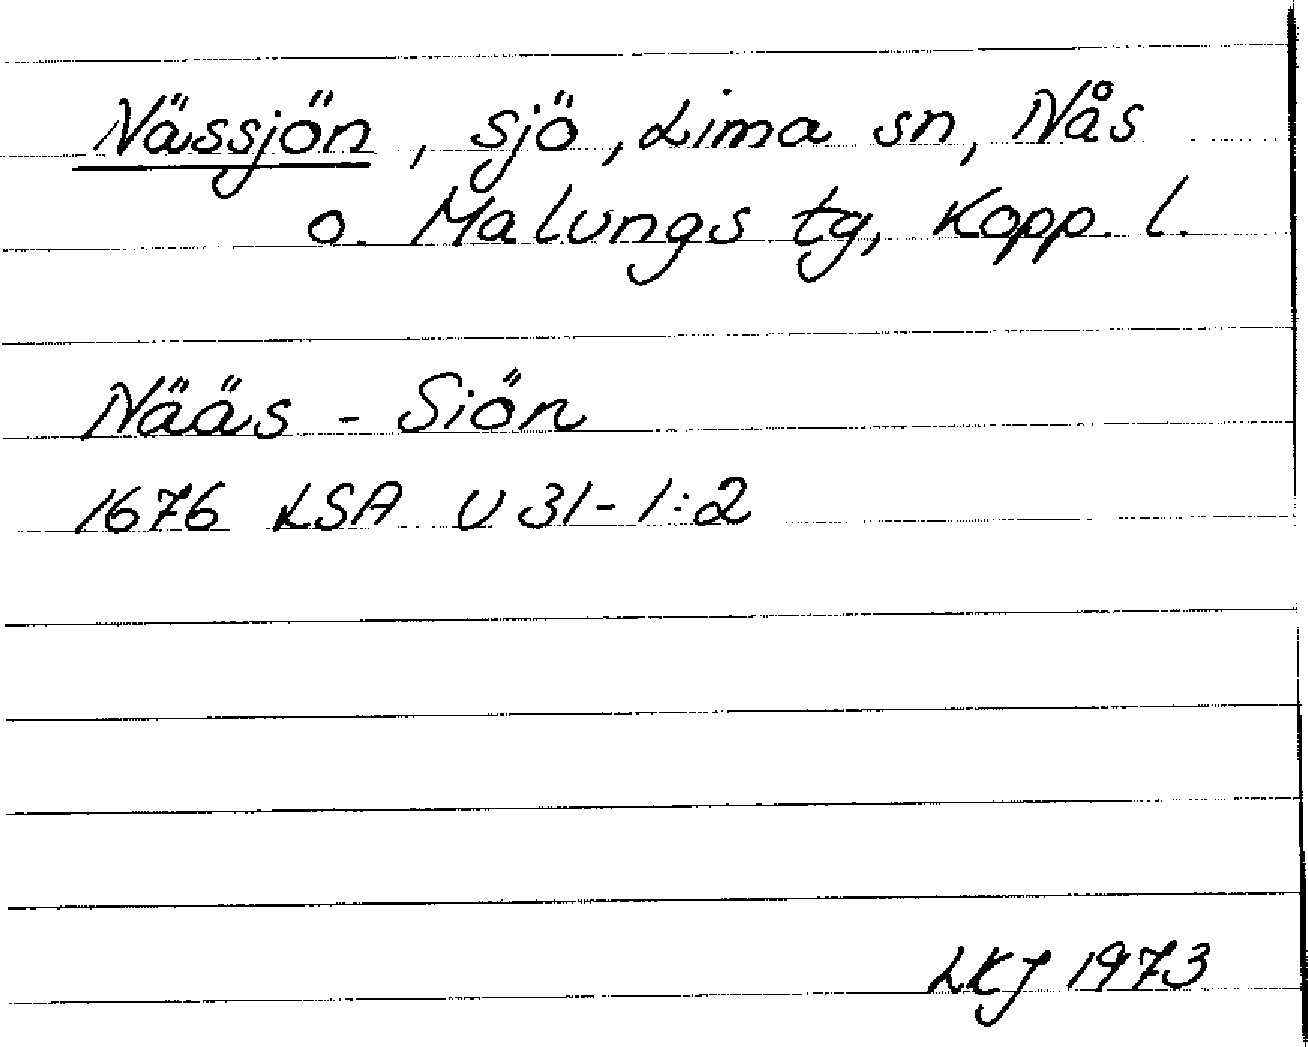 Nässjön, sjö, Lima sn, Nås
o. Malungs tg, Kopp. l.
Nääs - Siön
1676 LSA U 31-1:2
LKJ 1973